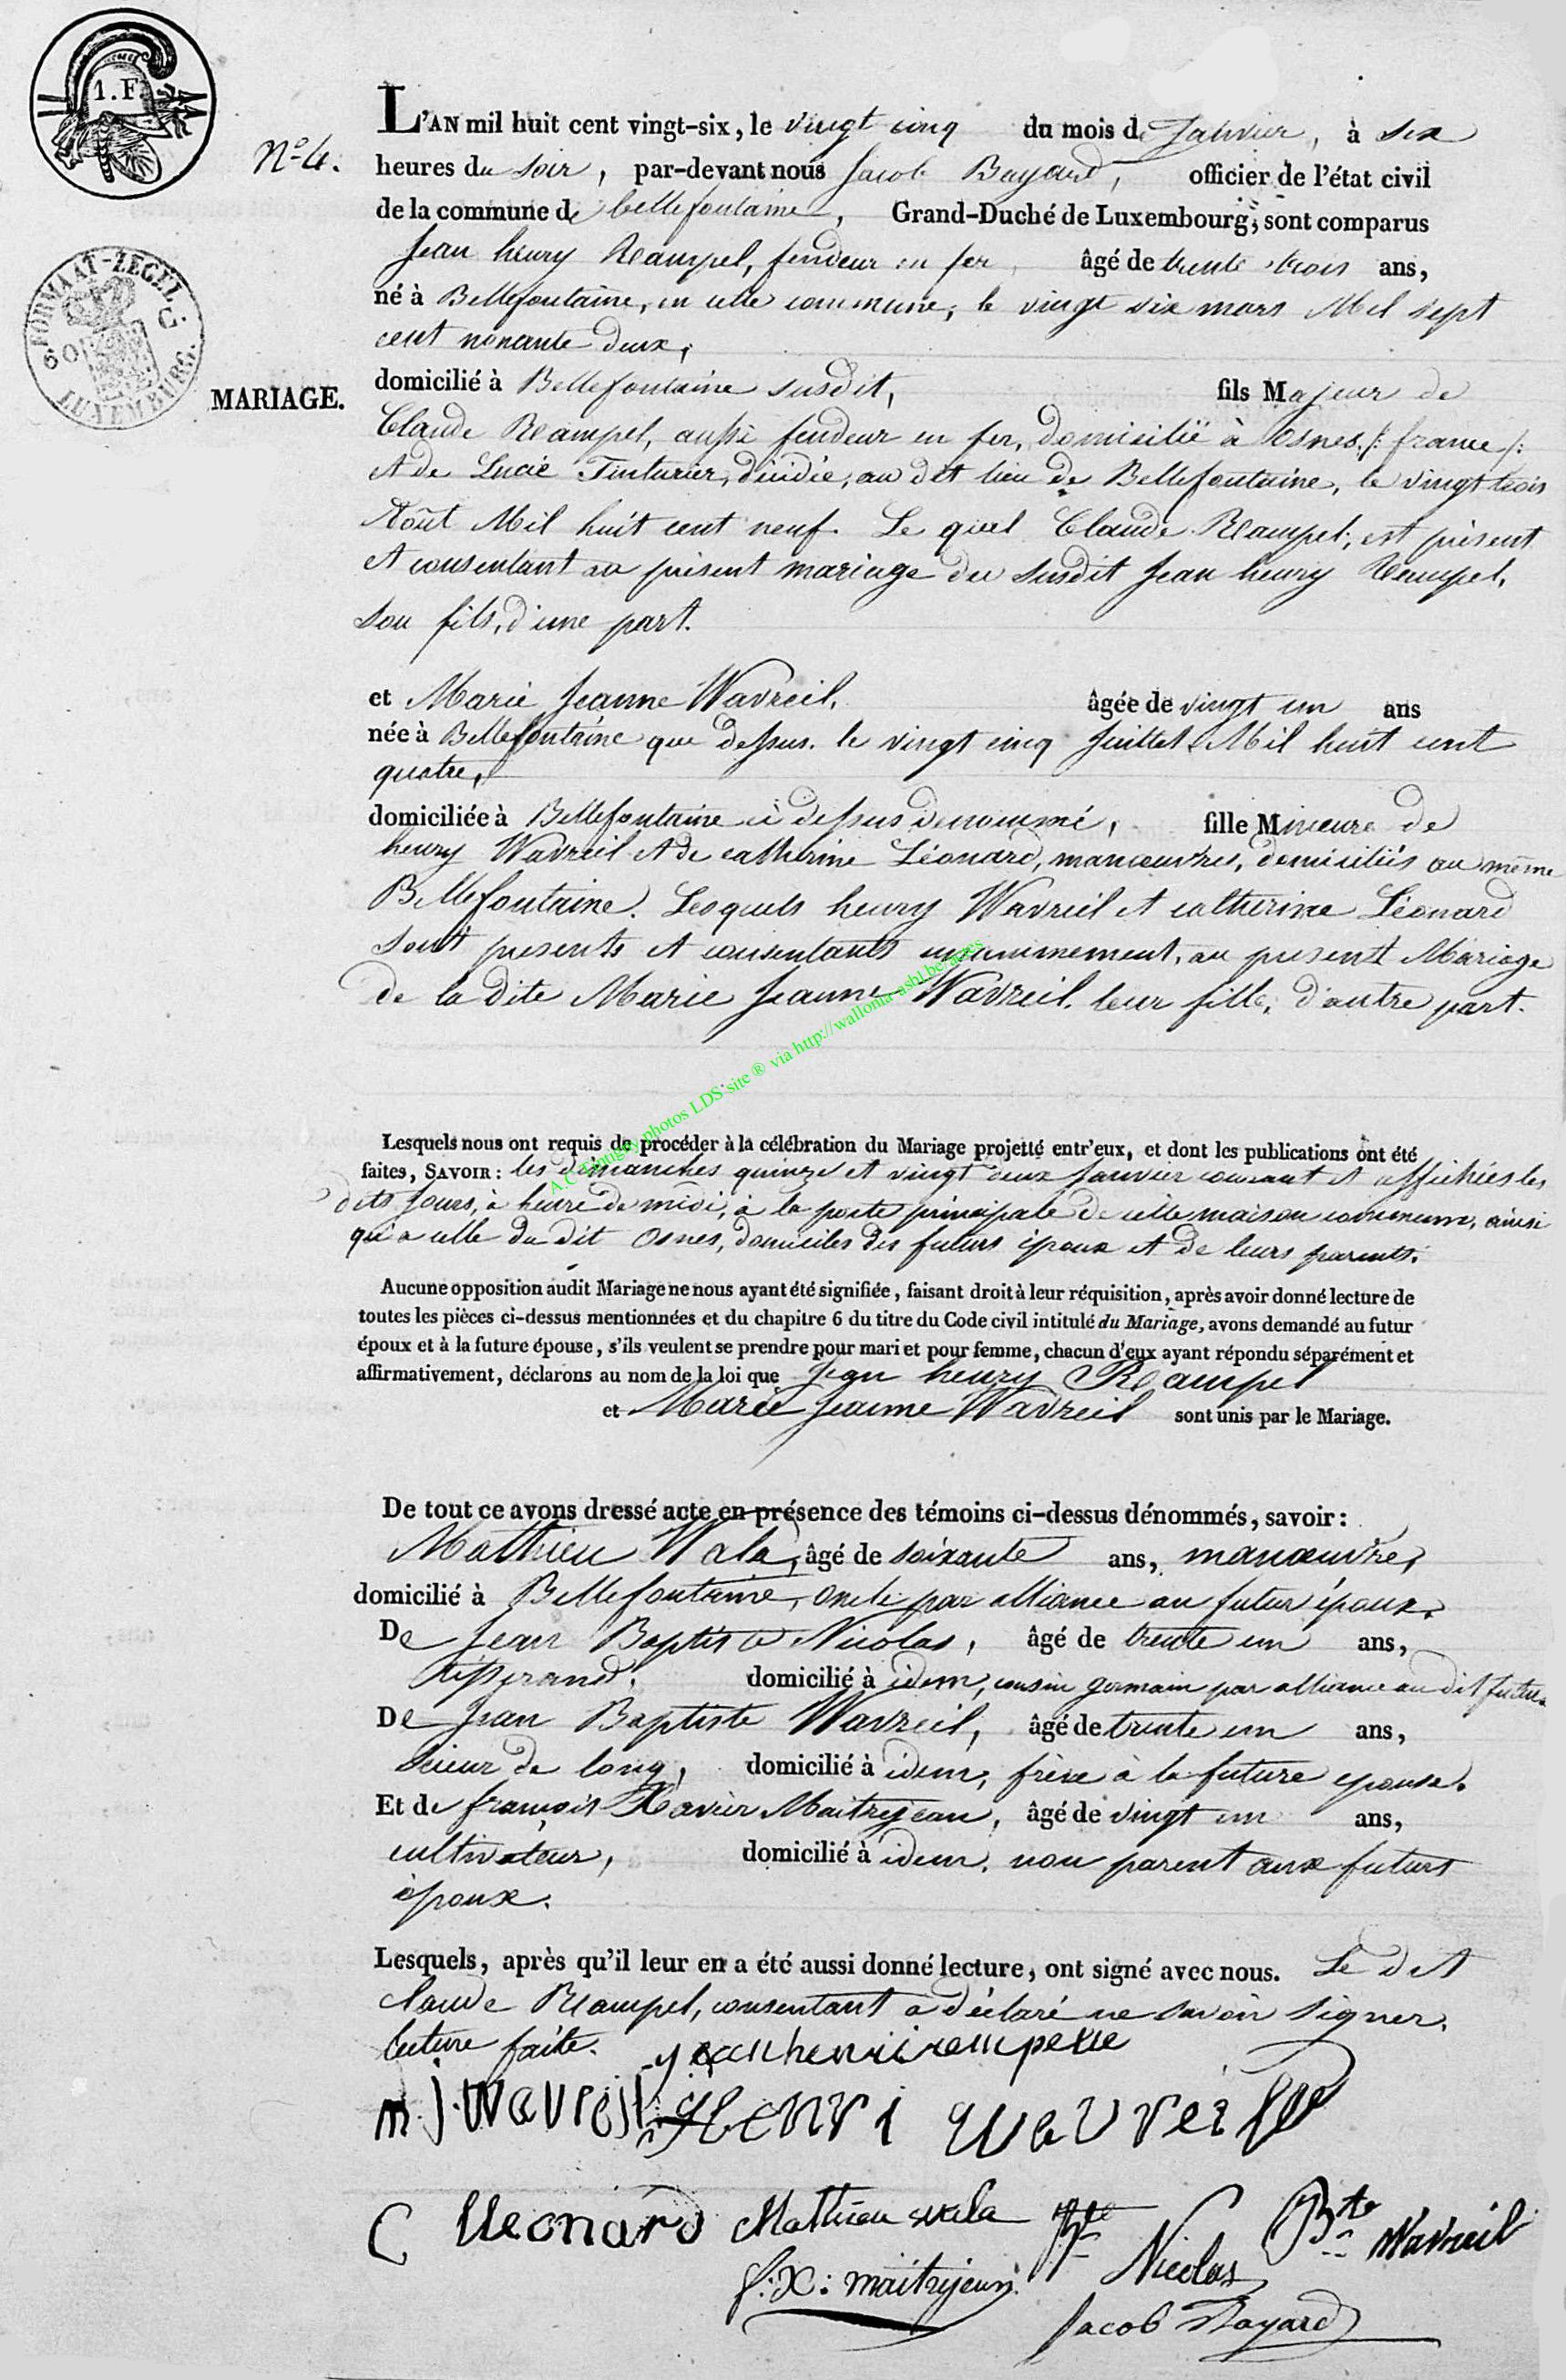 1. F.
L'AN mil huit cent vingt-six, le vingt cinq du mois de Janvier, à six
N.º 4.
heures du soir, par-devant nous Jacob Bayard, officier de l'état civil
de la commune de bellefontaine, Grand-Duché de Luxembourg, sont comparus
Jean henry Reampel, fendeur en fer, âgé de trente trois ans,
né à Bellefontaine, en cette commune, le vingt six mars Mil sept
cent nonante deux,
FORMAAT-ZEGEL.
60 C
LUXEMBURG.
MARIAGE.
domicilié à Bellefontaine susdit, fils Majeur de
Claude Reampel, aussi fendeur en fer, domicilié à Osnes, /: france /:
et de Lucie Tinturier, décidée, au dit lieu de Bellefontaine, le vingt trois
Août Mil huit cent neuf. Le quel Claude Reampel, est présent
et consentant au présent mariage du susdit Jean henry Reampel,
son fils, d'une part.
et Marie Jeanne Wavreil, âgée de vingt un ans
née à Bellefontaine que dessus. le vingt cinq Juillet Mil huit cent
quatre,
domiciliée à Bellefontaine ci dessus dénommé, fille Mineure de
henry Wavreil et de catherine Léonard, manœuvres, domiciliés au même
Bellefontaine. Lesquels henry Wavreil et catherine Léonard
sont presents et consentants unanimement, au present Mariage
de la dite Marie Jeanne Wavreil, leur fille, d'autre part.
A.C. Tintigny photos LDS site ® via http://wallonia-asbl.be/actes
Lesquels nous ont requis de procéder à la célébration du Mariage projetté entr'eux, et dont les publications ont été
faites, SAVOIR : les dimanches quinze et vingt deux Janvier courant et affichées les
dits Jours, à heure de midi, à la porte principale de cette maison commune, ainsi
qu'a celle du dit Osnes, domiciles des futurs époux et de leurs parents.
Aucune opposition audit Mariage ne nous ayant été signifiée, faisant droit à leur réquisition, après avoir donné lecture de
toutes les pièces ci-dessus mentionnées et du chapitre 6 du titre du Code civil intitulé du Mariage, avons demandé au futur
époux et à la future épouse, s'ils veulent se prendre pour mari et pour femme, chacun d'eux ayant répondu séparément et
affirmativement, déclarons au nom de la loi que Jean henry Reampel
et Marie Jeanne Wavreil sont unis par le Mariage.
De tout ce avons dressé acte en présence des témoins ci-dessus dénommés, savoir :
Mathieu Wala, âgé de soixante ans, manœuvre,
domicilié à Bellefontaine, oncle par alliance au futur époux.
De Jean Baptiste Nicolas, âgé de trente un ans,
tisserand, domicilié à idem, cousin germain par alliance au dit futur.
De Jean Baptiste Wavreil, âgé de trente un ans,
scieur de long, domicilié à idem, frère à la future epouse.
Et de françois Xavier Maitrejean, âgé de vingt un ans,
cultivateur, domicilié à idem, non parent aux futurs
époux.
Lesquels, après qu'il leur en a été aussi donné lecture, ont signé avec nous. Le dit
Claude Reampel, consentant a déclaré ne savoir signer.
lecture faite. jean henri rempelle
m. J. Wavreil henri wauvreille
C Lleonard Mathieu wala Bte Nicolas Bte Wavreil
f: X: maitrejean
Jacob Bayard